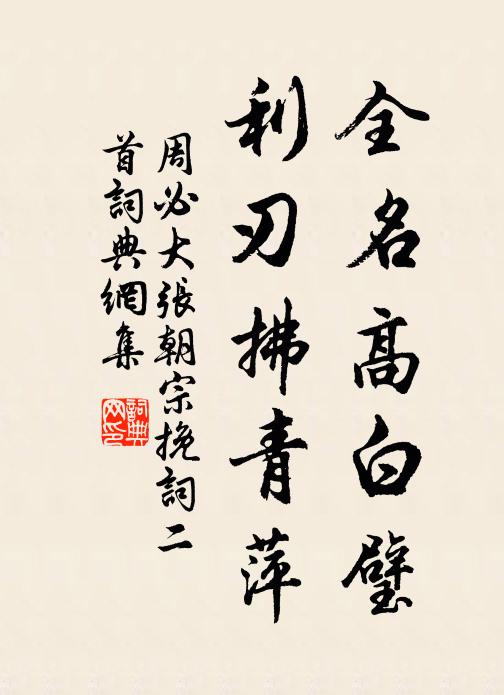 全名高白璧
利刃拂青萍
周必大張朝宗挽詞二
首詞典網集
詞典
网印